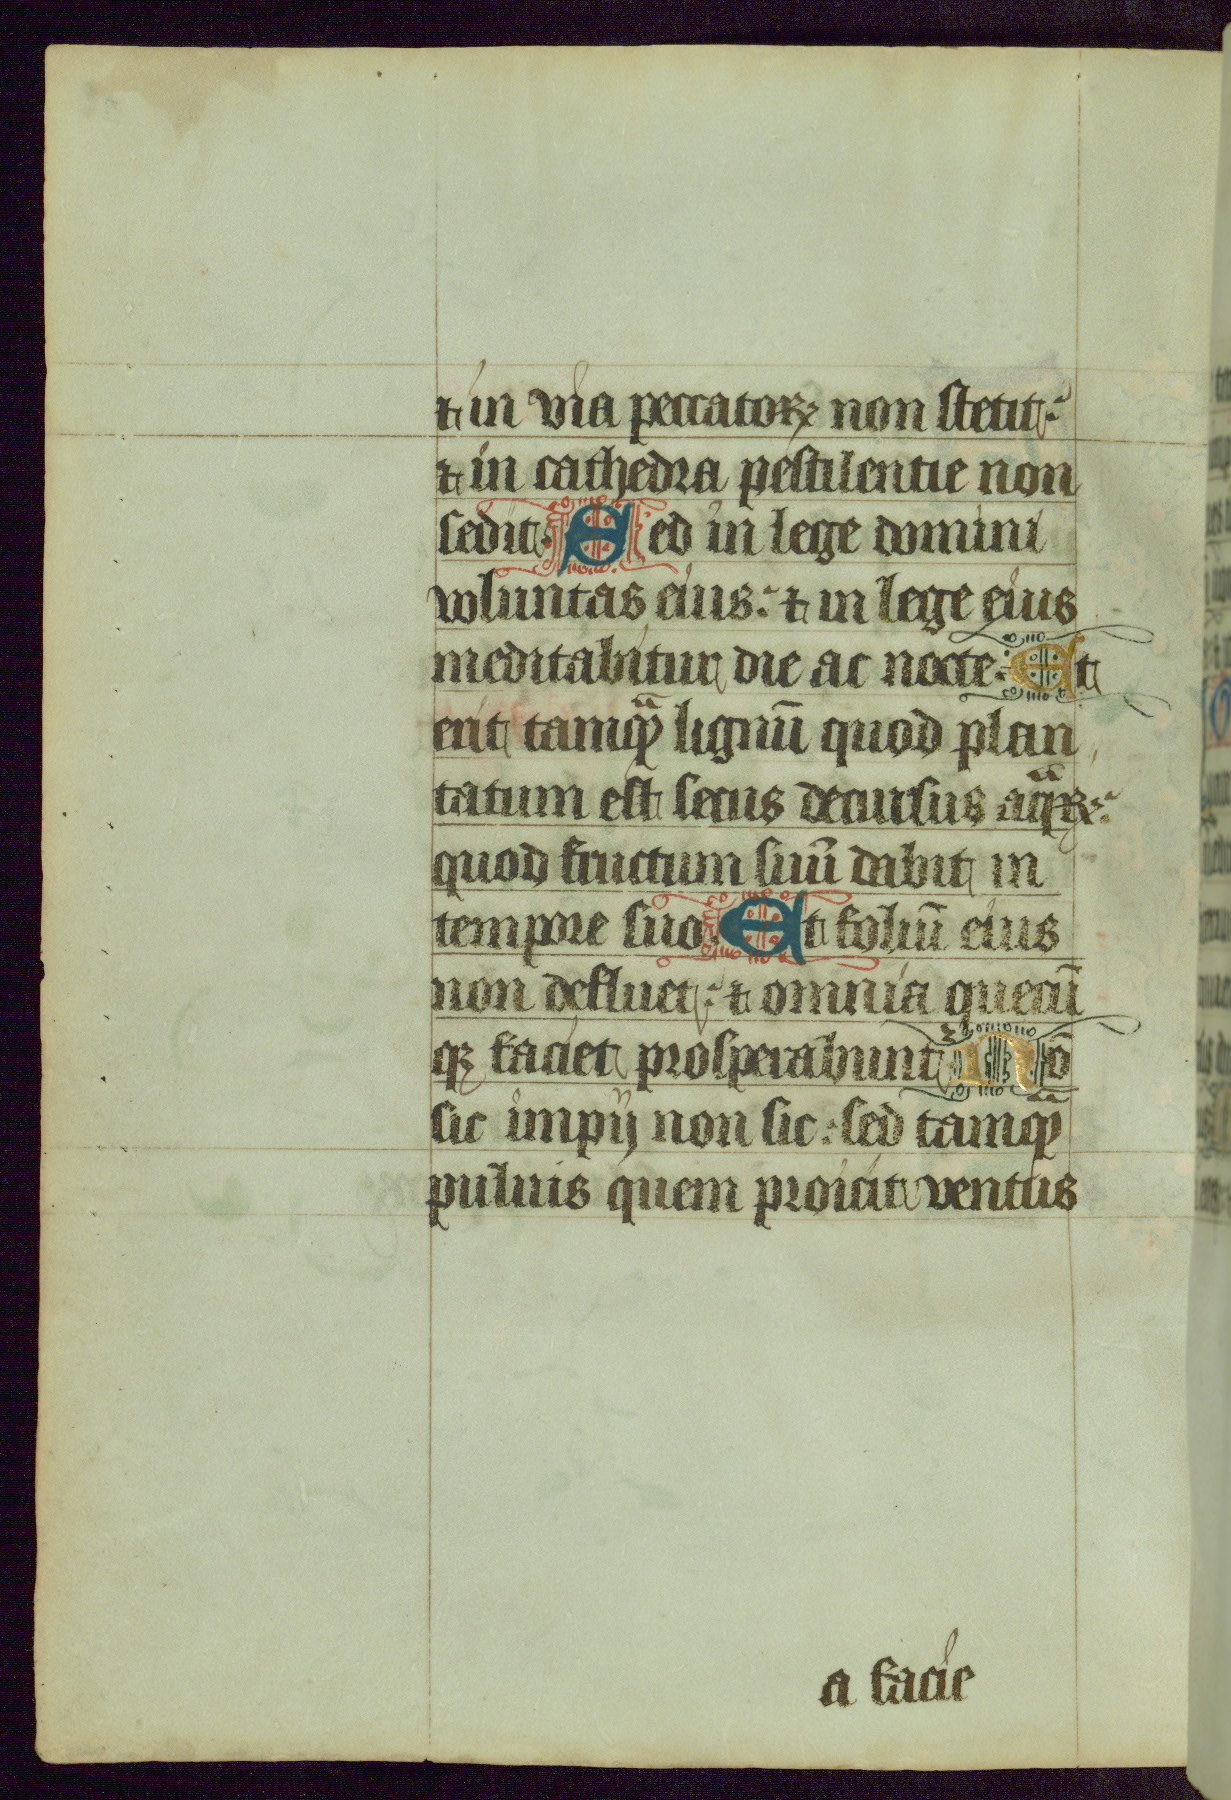 ⁊ in via peccatoꝝ non stetit:
⁊ in cathedra pestilentie non
sedit. Sed in lege domini
voluntas eius: ⁊ in lege eius
meditabitur die ac nocte. Et
erit tamqᷓ lignū quod plan
tatum est secus decursus aqᷓꝝ:
quod fructum suū dabit in
tempore suo. Et foliū eius
non defluet: ⁊ omnia quecū
qꝫ faciet prosperabunt. Nō
sic impij non sic: sed tamqᷓ
puluis quem proicit ventus
a facie